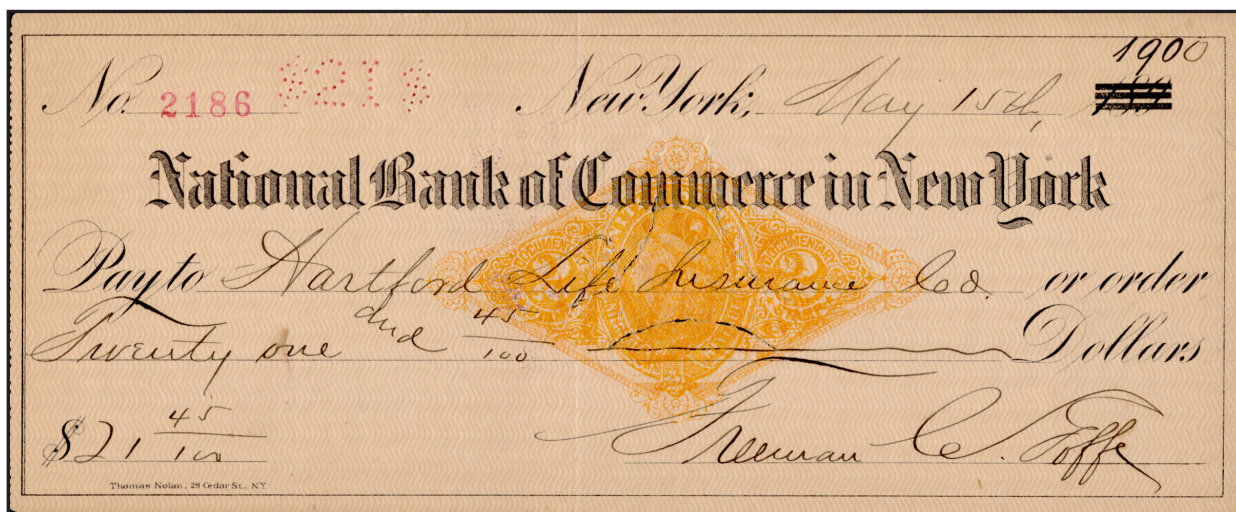 1900
No. 2186 $21$ New York, May 15th, 189
National Bank of Commerce in New York
DOCUMENTARY 2 2 DOCUMENTARY
Pay to Hartford Life Insurance Co. or order
Twenty one and 45/100 Dollars
$21 45/100 Freeman C.
Thomas Nolan, 28 Cedar St., N.Y.